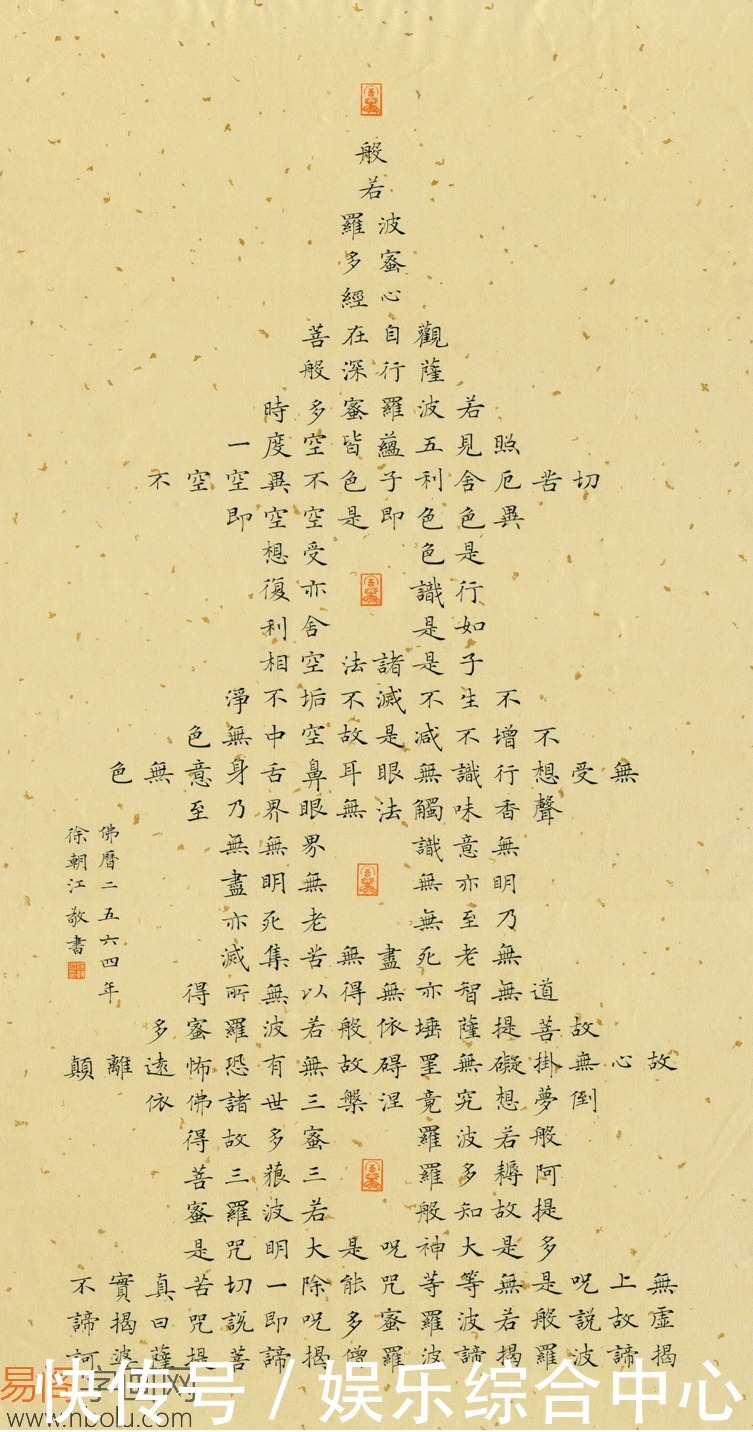 般
若
波羅
蜜多
心經
觀自在菩
薩行深般
若波羅蜜多時
照見五蘊皆空度一
切苦厄舍利子色不異空空不
異色色即是空空即
是色受想
行識亦復
如是舍利
子是諸法空相
不生不滅不垢不淨
不增不减是故空中無色
無受想行識無眼耳鼻舌身意無色
聲香味觸法無眼界乃至
無意識界無無
明亦無無明盡
乃至無老死亦
無老死盡無苦集滅
道無智亦無得以無所得
故菩提薩埵依般若波羅蜜多
故心無掛礙無罣碍故無有恐怖遠離顛
倒夢想究竟涅槃三世諸佛依
般若波羅蜜多故得
阿耨多羅三藐三菩
提故知般若波羅蜜
多是大神呪是大明咒是
無上呪是無等等咒能除一切苦真實不
虛故說般若波羅蜜多呪即說咒曰揭諦
揭諦波羅揭諦波羅僧揭諦菩提薩婆訶
佛曆二五六四年
徐朝江敬書
快传号 / 娱乐综合中心
www.nbolu.com